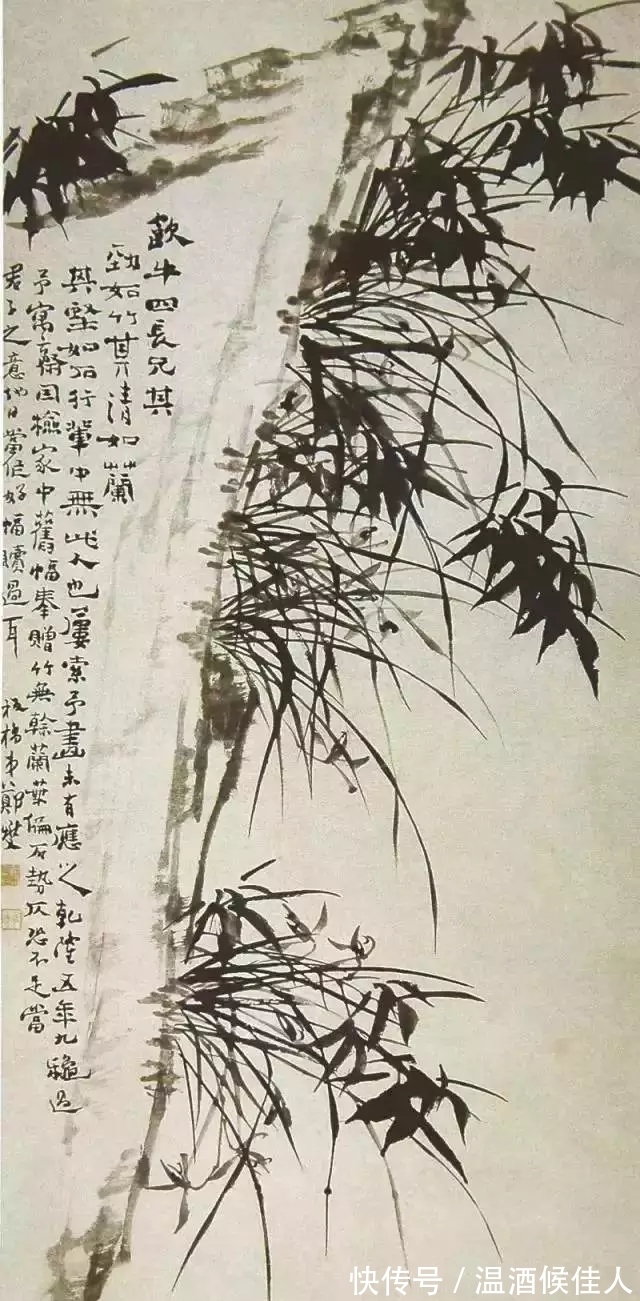 四長兄其
勁如竹其清如蘭
其堅如石行輩中無此人也屢索予畫未有應之乾隆五年九龝過
予寓齋因檢家中舊幅奉贈竹無榦蘭葉偏石勢仄恐不足當
君子之意他日當作好幅贖過耳 板橋弟鄭燮
快传号/温酒候佳人